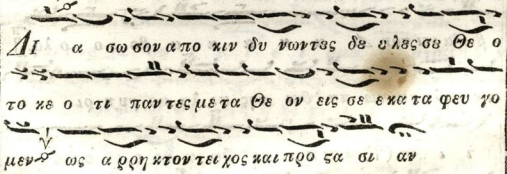 Δι α σω σον α πο κιν δυ νων τες δε ε λες σε Θε ο
το κε ο τι παν τες με τα Θε ον εις σε ε κα τα φευ γο
μεν ως α ρρη κτον τει χος και προ ςα σι αν